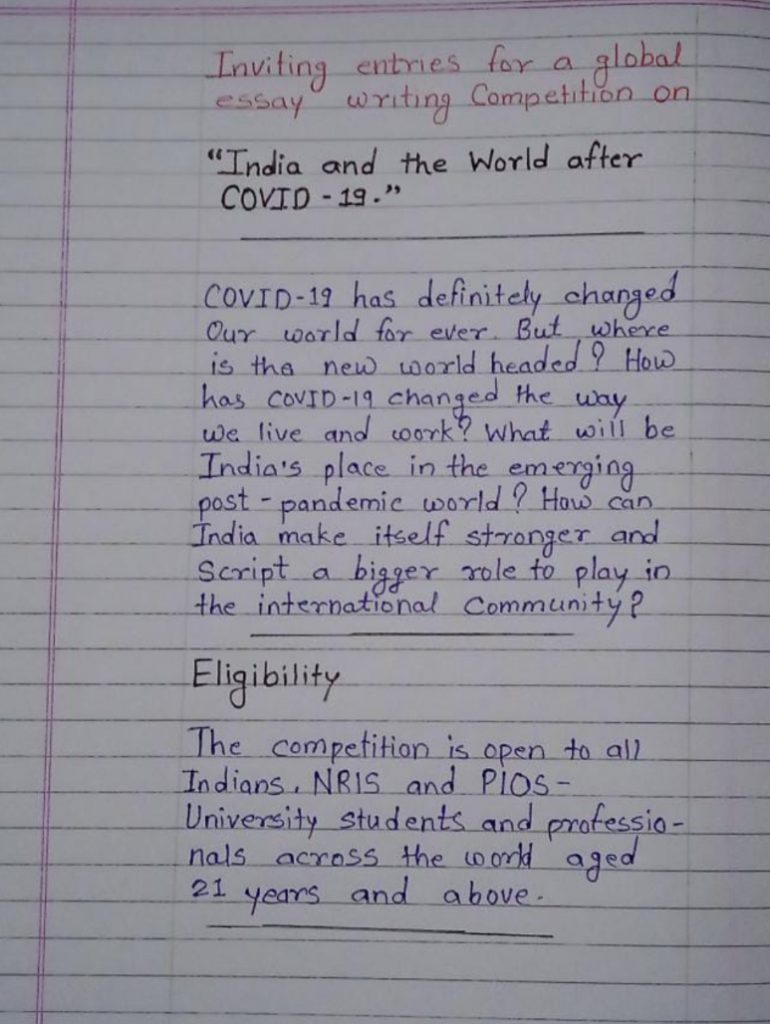 Inviting entries for a global
essay writing Competition on
"India and the World after
COVID-19."
COVID-19 has definitely changed
Our world for ever. But, where
is the new world headed? How
has COVID-19 changed the way
we live and work? What will be
India's place in the emerging
post-pandemic world? How can
India make itself stronger and
Script a bigger role to play in
the international Community?
Eligibility
The competition is open to all
Indians, NRIS and PIOS-
University students and professio-
nals across the world aged
21 years and above.